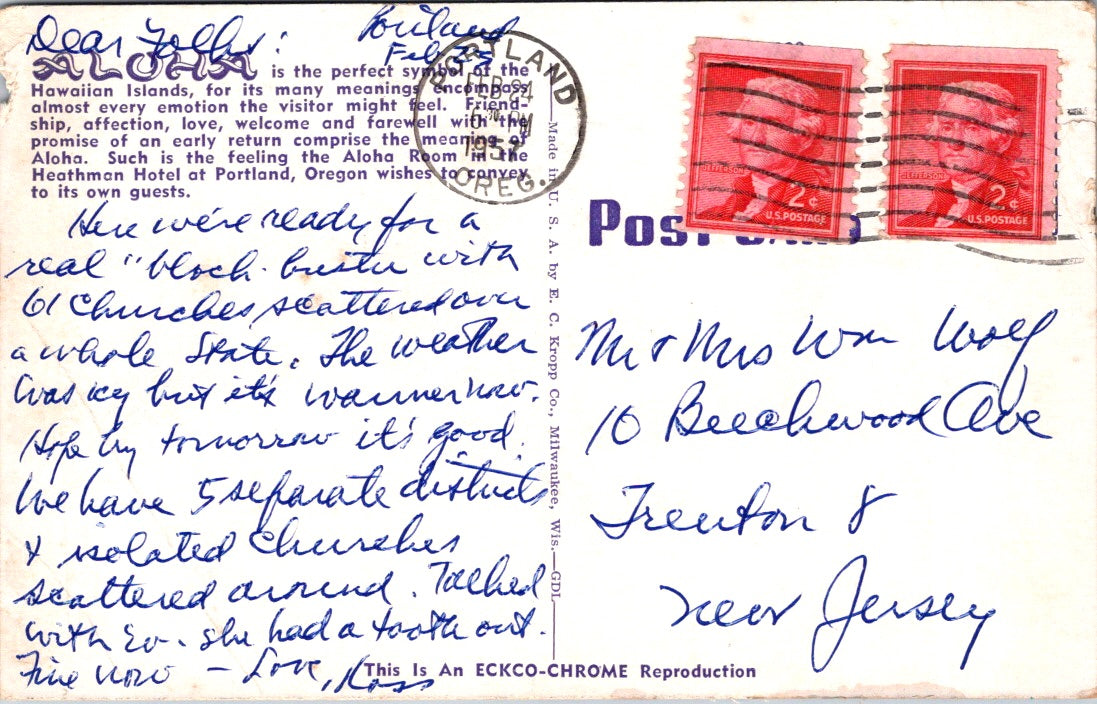 Dear Folks: Portland
Feb 23
ALOHA is the perfect symbol of the
Hawaiian Islands, for its many meanings encompass
almost every emotion the visitor might feel. Friend-
ship, affection, love, welcome and farewell with the
promise of an early return comprise the meaning of
Aloha. Such is the feeling the Aloha Room in the
Heathman Hotel at Portland, Oregon wishes to convey
to its own guests.
Here we're ready for a
real "block-buster with
61 Churches scattered over
a whole State. The weather
was icy but it's warmer now.
Hope by tomorrow it's good.
We have 5 separate districts
& isolated Churches
scattered around. Talked
with Ev. She had a tooth out.
Fine now — Love, Ross
PORTLAND
FEB 24
PM
195
OREG.
Made in U. S. A. by E. C. Kropp Co., Milwaukee, Wis.—GDL
JEFFERSON
2¢
U.S. POSTAGE
JEFFERSON
2¢
U.S. POSTAGE
POST CARD
Mr & Mrs Wm Wolf
10 Beechwood Ave
Trenton 8
New Jersey
This Is An ECKCO-CHROME Reproduction